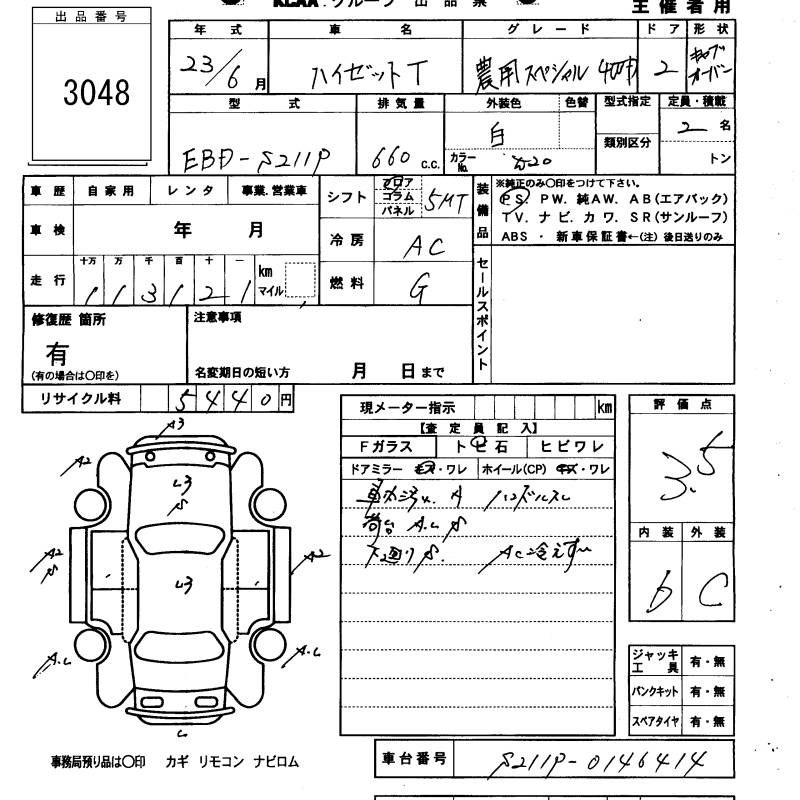 KCAA グループ 出品票
主催者用
出品番号
3048
年式 車名 グレード ドア 形状
23/6月 ハイゼットT 農用スペシャル 4WD 2 キャブオーバー
型式 排気量 外装色 色替 型式指定 定員・積載
EBD-S211P 660 c.c. 白
カラーNo. 類別区分 2名
トン
車歴 自家用 レンタ 事業.営業車
車検 年 月
走行 十万 万 千 百 十 一
1 1 3 1 2 1 km マイル
シフト フロア コラム パネル 5MT
冷房 AC
燃料 G
装備品 ※純正のみ○印をつけて下さい。
PS. PW. 純AW. AB(エアバック)
TV. ナビ. カワ. SR(サンルーフ)
ABS ・ 新車保証書←(注) 後日送りのみ
セールスポイント
修復歴 箇所
有
(有の場合は○印を)
注意事項
名変期日の短い方 月 日まで
リサイクル料 5440円
現メーター指示 km
【査定員記入】
Fガラス トビ石 ヒビワレ
ドアミラー キズ・ワレ ホイール(CP) キズ・ワレ
車内汚れ A ハンドルスレ
荷台 A.L S
下廻りS. AC冷えず
評価点
3.5
内装 外装
b C
A3
A2
L3
S
A2
S
A2
L3
A.L
A.L
L
ジャッキ工具 有・無
パンクキット 有・無
スペアタイヤ 有・無
事務局預り品は○印 カギ リモコン ナビロム
車台番号 S211P-0146414